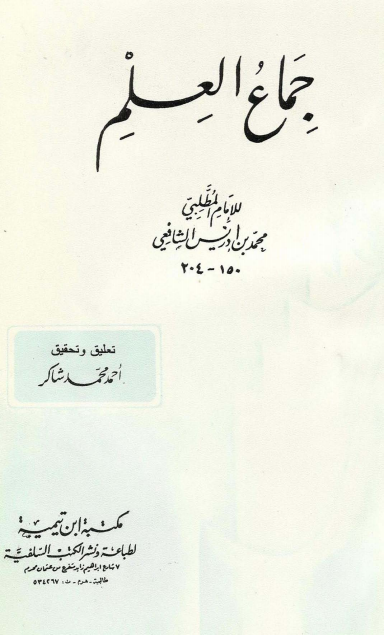 جِمَاعُ العِلْمِ
للإِمَامِ المُطَّلِبِيّ
محمد بن ادريس الشافعي
١٥٠ - ٢٠٤
تعليق وتحقيق
أحمد محمد شاكر
مكتبة ابن تيمية
لطباعة ونشر الكتب السلفيَّة
٧ شارع ابراهيم من عثمان محرم
طالبية - هرم - ت: ٥٣٤٢٦٧